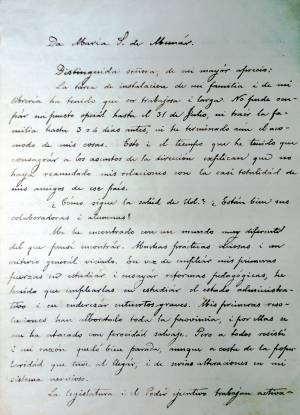 Da Maria S. de Munár.
Distinguida señora, de mi mayor aprecio:
La tarea de instalacion de mi familia i de mi
libreria ha tenido que ser trabajosa i larga. No pude ocu-
par mi puesto oficial hasta el 31 de Julio, ni traer la fa-
milia hasta 3 o 4 dias antes, ni he terminado con el aco-
modo de mis cosas. Esto i el tiempo que he tenido que
consagrar a los asuntos de la direccion esplican que no
haya reanudado mis relaciones con la casi totalidad de
mis amigos de ese pais.
¿Como sigue la salud de Ud.? ¿Están bien sus
colaboradoras i alumnas?
Me he encontrado con un mundo muy diferente
del que pensé encontrár. Muchas practicas viciosas i un
criterio general viciado. En vez de emplear mis primeras
fuerzas en estudiar i ensayar reformas pedagójicas, he
tenido que emplearlas en estudiar el estado administra-
tivo i en enderezar entuertos graves. Mis primeras reso-
luciones han alborotado toda la provincia, i por ellas se
me ha atacado con ferocidad salvaje. Pero a todos resistí
i mi razón quedó bien parada, aunque a costa de la popu-
laridad que traje al llegár, i de serias alteraciones en mi
sistema nervioso.
La lejislatura i el Poder ejecutivo trabajan activa-